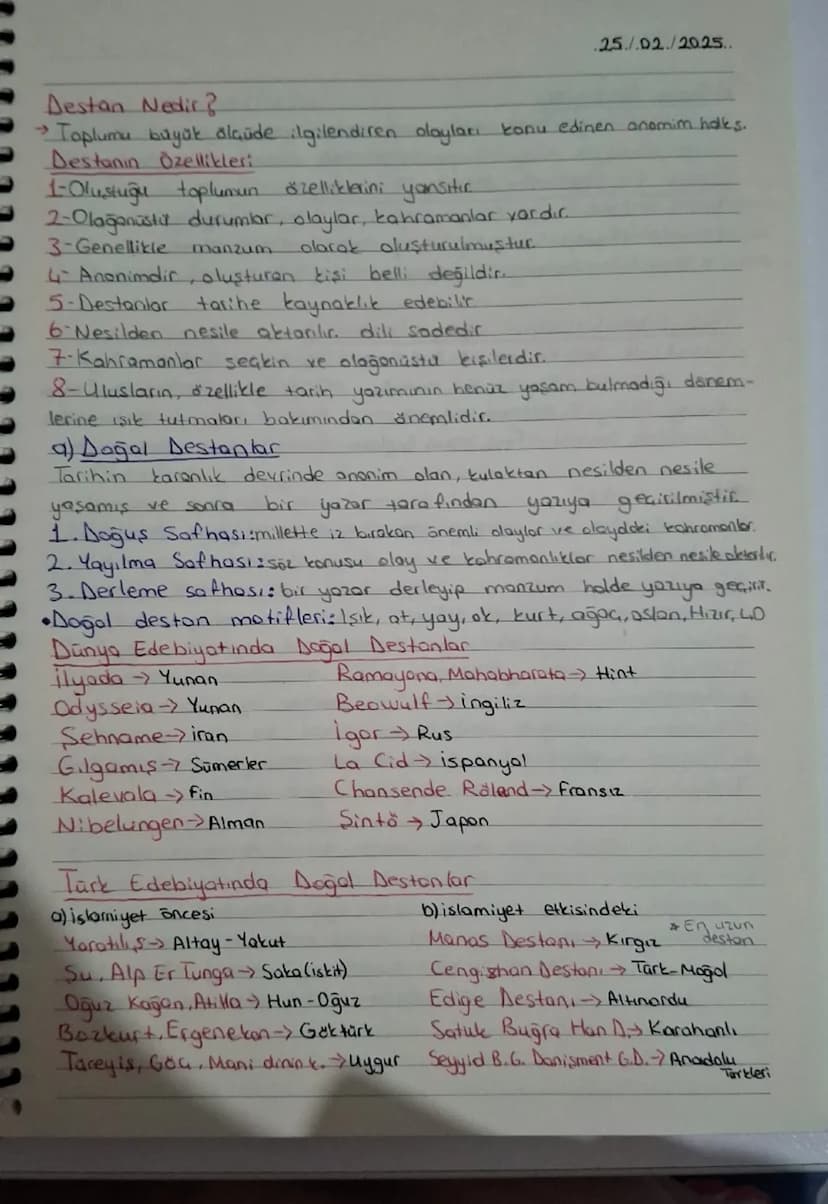 25/02/2025
Destan Nedir?
→ Toplumu büyük ölçüde ilgilendiren olayları konu edinen anonim halk s.
Destanın Özellikleri:
1-Oluştuğu toplumun özelliklerini yansıtır
2-Olağanüstü durumlar, olaylar, kahramanlar vardır.
3-Genellikle manzum olarak oluşturulmuştur
4-Anonimdir, oluşturan kişi belli değildir.
5-Destanlar tarihe kaynaklık edebilir
6-Nesilden nesile aktarılır. dili sadedir
7-Kahramanlar seçkin ve olağanüstü kişilerdir.
8-Ulusların, özellikle tarih yazımının henüz yaşam bulmadığı dönem-
lerine ışık tutmaları bakımından önemlidir.
a) Doğal Destanlar
Tarihin karanlık devrinde anonim olan, kulaktan nesilden nesile
yaşamış ve sonra bir yazar tarafından yazıya geçirilmiştir
1. Doğuş Safhası: millette iz bırakan önemli olaylar ve olaydaki kahramanlar.
2. Yayılma Safhası: söz konusu olay ve kahramanlıklar nesilden nesile aktarılır.
3. Derleme safhası: bir yazar derleyip manzum halde yazıya geçirir.
•Doğal destan motifleri: Işık, at, yay, ok, kurt, ağaç, aslan, Hızır, 40
Dünya Edebiyatında Doğal Destanlar
İlyada → Yunan Ramayana, Mahabharata → Hint
Odysseia → Yunan Beowulf → ingiliz
Şehname → iran İgor → Rus
Gılgamış → Sümerler La Cid → ispanyol
Kalevala → Fin Chansende Röland → Fransız
Nibelungen → Alman Şintö → Japon
Türk Edebiyatında Doğal Destanlar
a) islamiyet öncesi b) islamiyet etkisindeki
Yaratılış → Altay-Yakut Manas Destanı → Kırgız * En uzun destan
Şu, Alp Er Tunga → Saka (iskit) Cengizhan Destanı → Türk-Moğol
Oğuz Kağan, Atilla → Hun-Oğuz Edige Destanı → Altınordu
Bozkurt, Ergenekon → Göktürk Satuk Buğra Han D. → Karahanlı
Türeyiş, Göç, Mani dinin k. → Uygur Seyyid B.G. Danişment G.D. → Anadolu Türkleri